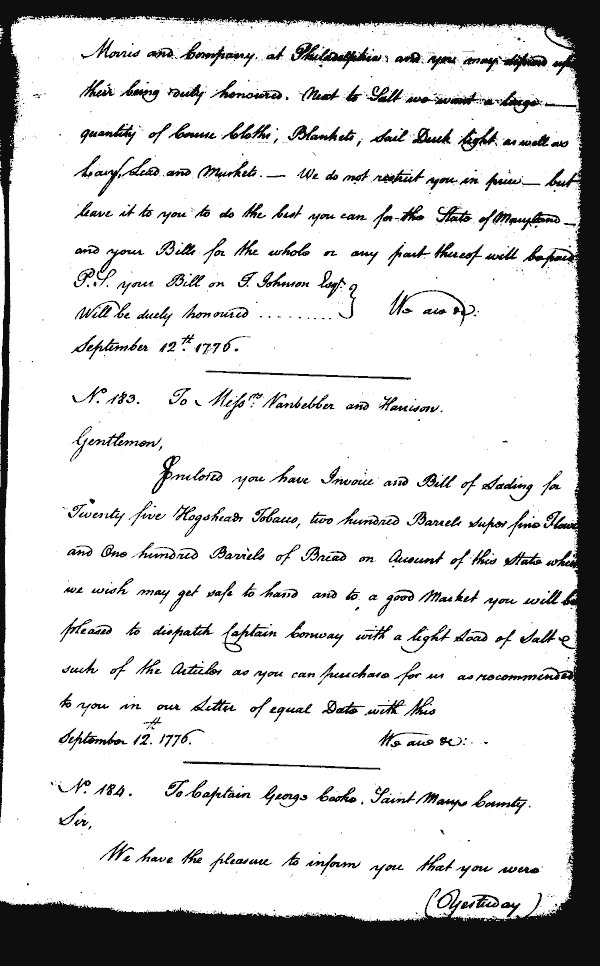 Morris and Company at Philadelphia and you may depend upo
their being duly honoured. Next to Salt we want a large —
quantity of Course Cloths, Blankets, Sail Duck light as well as
heavy, Lead and Muskets. — We do not restrict you in price — but
leave it to you to do the best you can for the State of Maryland —
and your Bills for the whole or any part thereof will be paid
P.S. your Bill on T. Johnson Esqr. }
Will be duely honoured ......... } We are &c:
September 12th. 1776.
No. 183. To Messrs Vanbebber and Harrison.
Gentlemen,
Enclosed you have Invoice and Bill of Lading for
Twenty five Hogsheads Tobacco, two hundred Barrels super fine Flour
and One hundred Barrels of Bread on Account of this State which
we wish may get safe to hand and to a good Market you will be
pleased to dispatch Captain Conway with a light Load of Salt &
such of the Articles as you can purchase for us as recommended
to you in our Letter of equal Date with this
September 12th. 1776. We are &c:
No. 184. To Captain George Cooke, Saint Marys County.
Sir,
We have the pleasure to inform you that you were
(Yesterday)